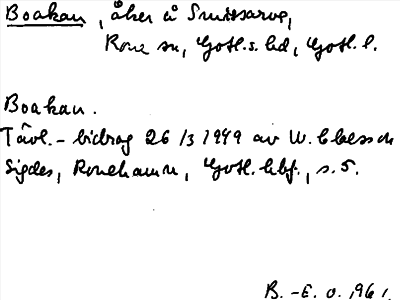 Boakau, åker å Smissarve,
Rone sn, Gotl. s. hd, Gotl. l.
Boakau.
Tävl.-bidrag 26/3 1949 av W. Claesson
Sigdes, Ronehamn, Gotl. hbf., s. 5.
B.-E. O. 1961.